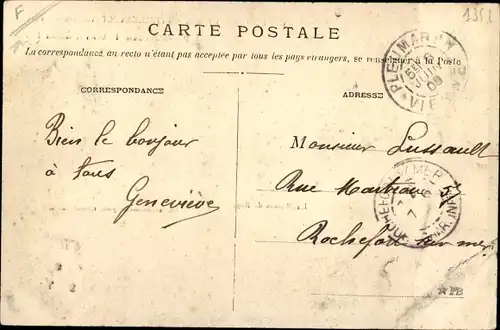 F
1351
CARTE POSTALE
La correspondance au recto n'étant pas acceptée par tous les pays étrangers, se renseigner à la Poste
PLEUMARTIN
VIENNE
08
CORRESPONDANCE
ADRESSE
Bien le bonjour
à tous
Geneviève
Monsieur Lussault
Rue 57
Rochefort sur mer
ROCHEFORT S/ MER